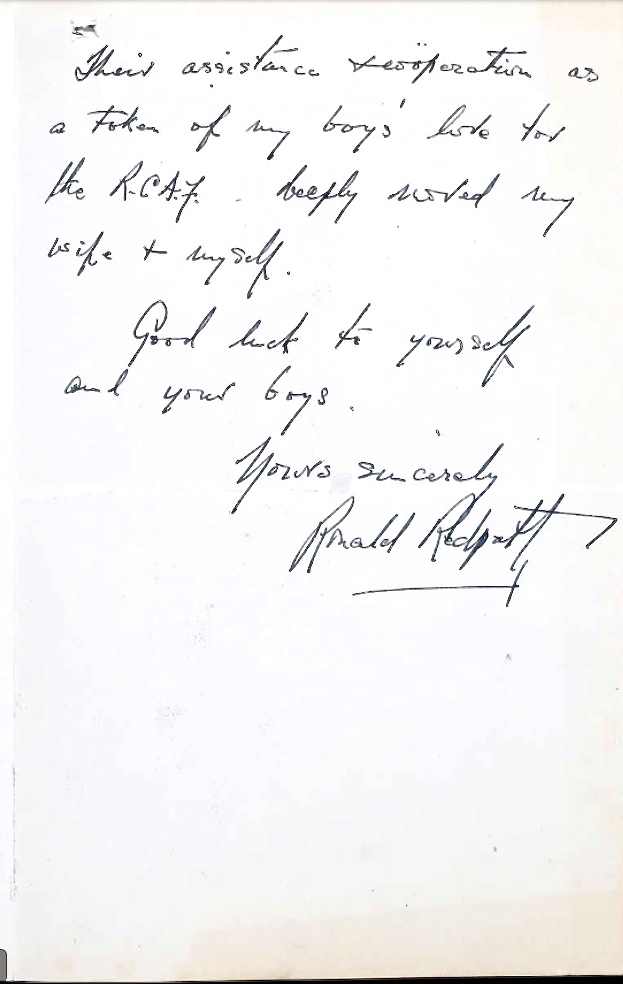 Their assistance + coöperation as
a token of my boys' love for
the R.C.A.F. deeply moved my
wife + myself.
Good luck to yourself
and your boys.
Yours sincerely
Ronald Redpath